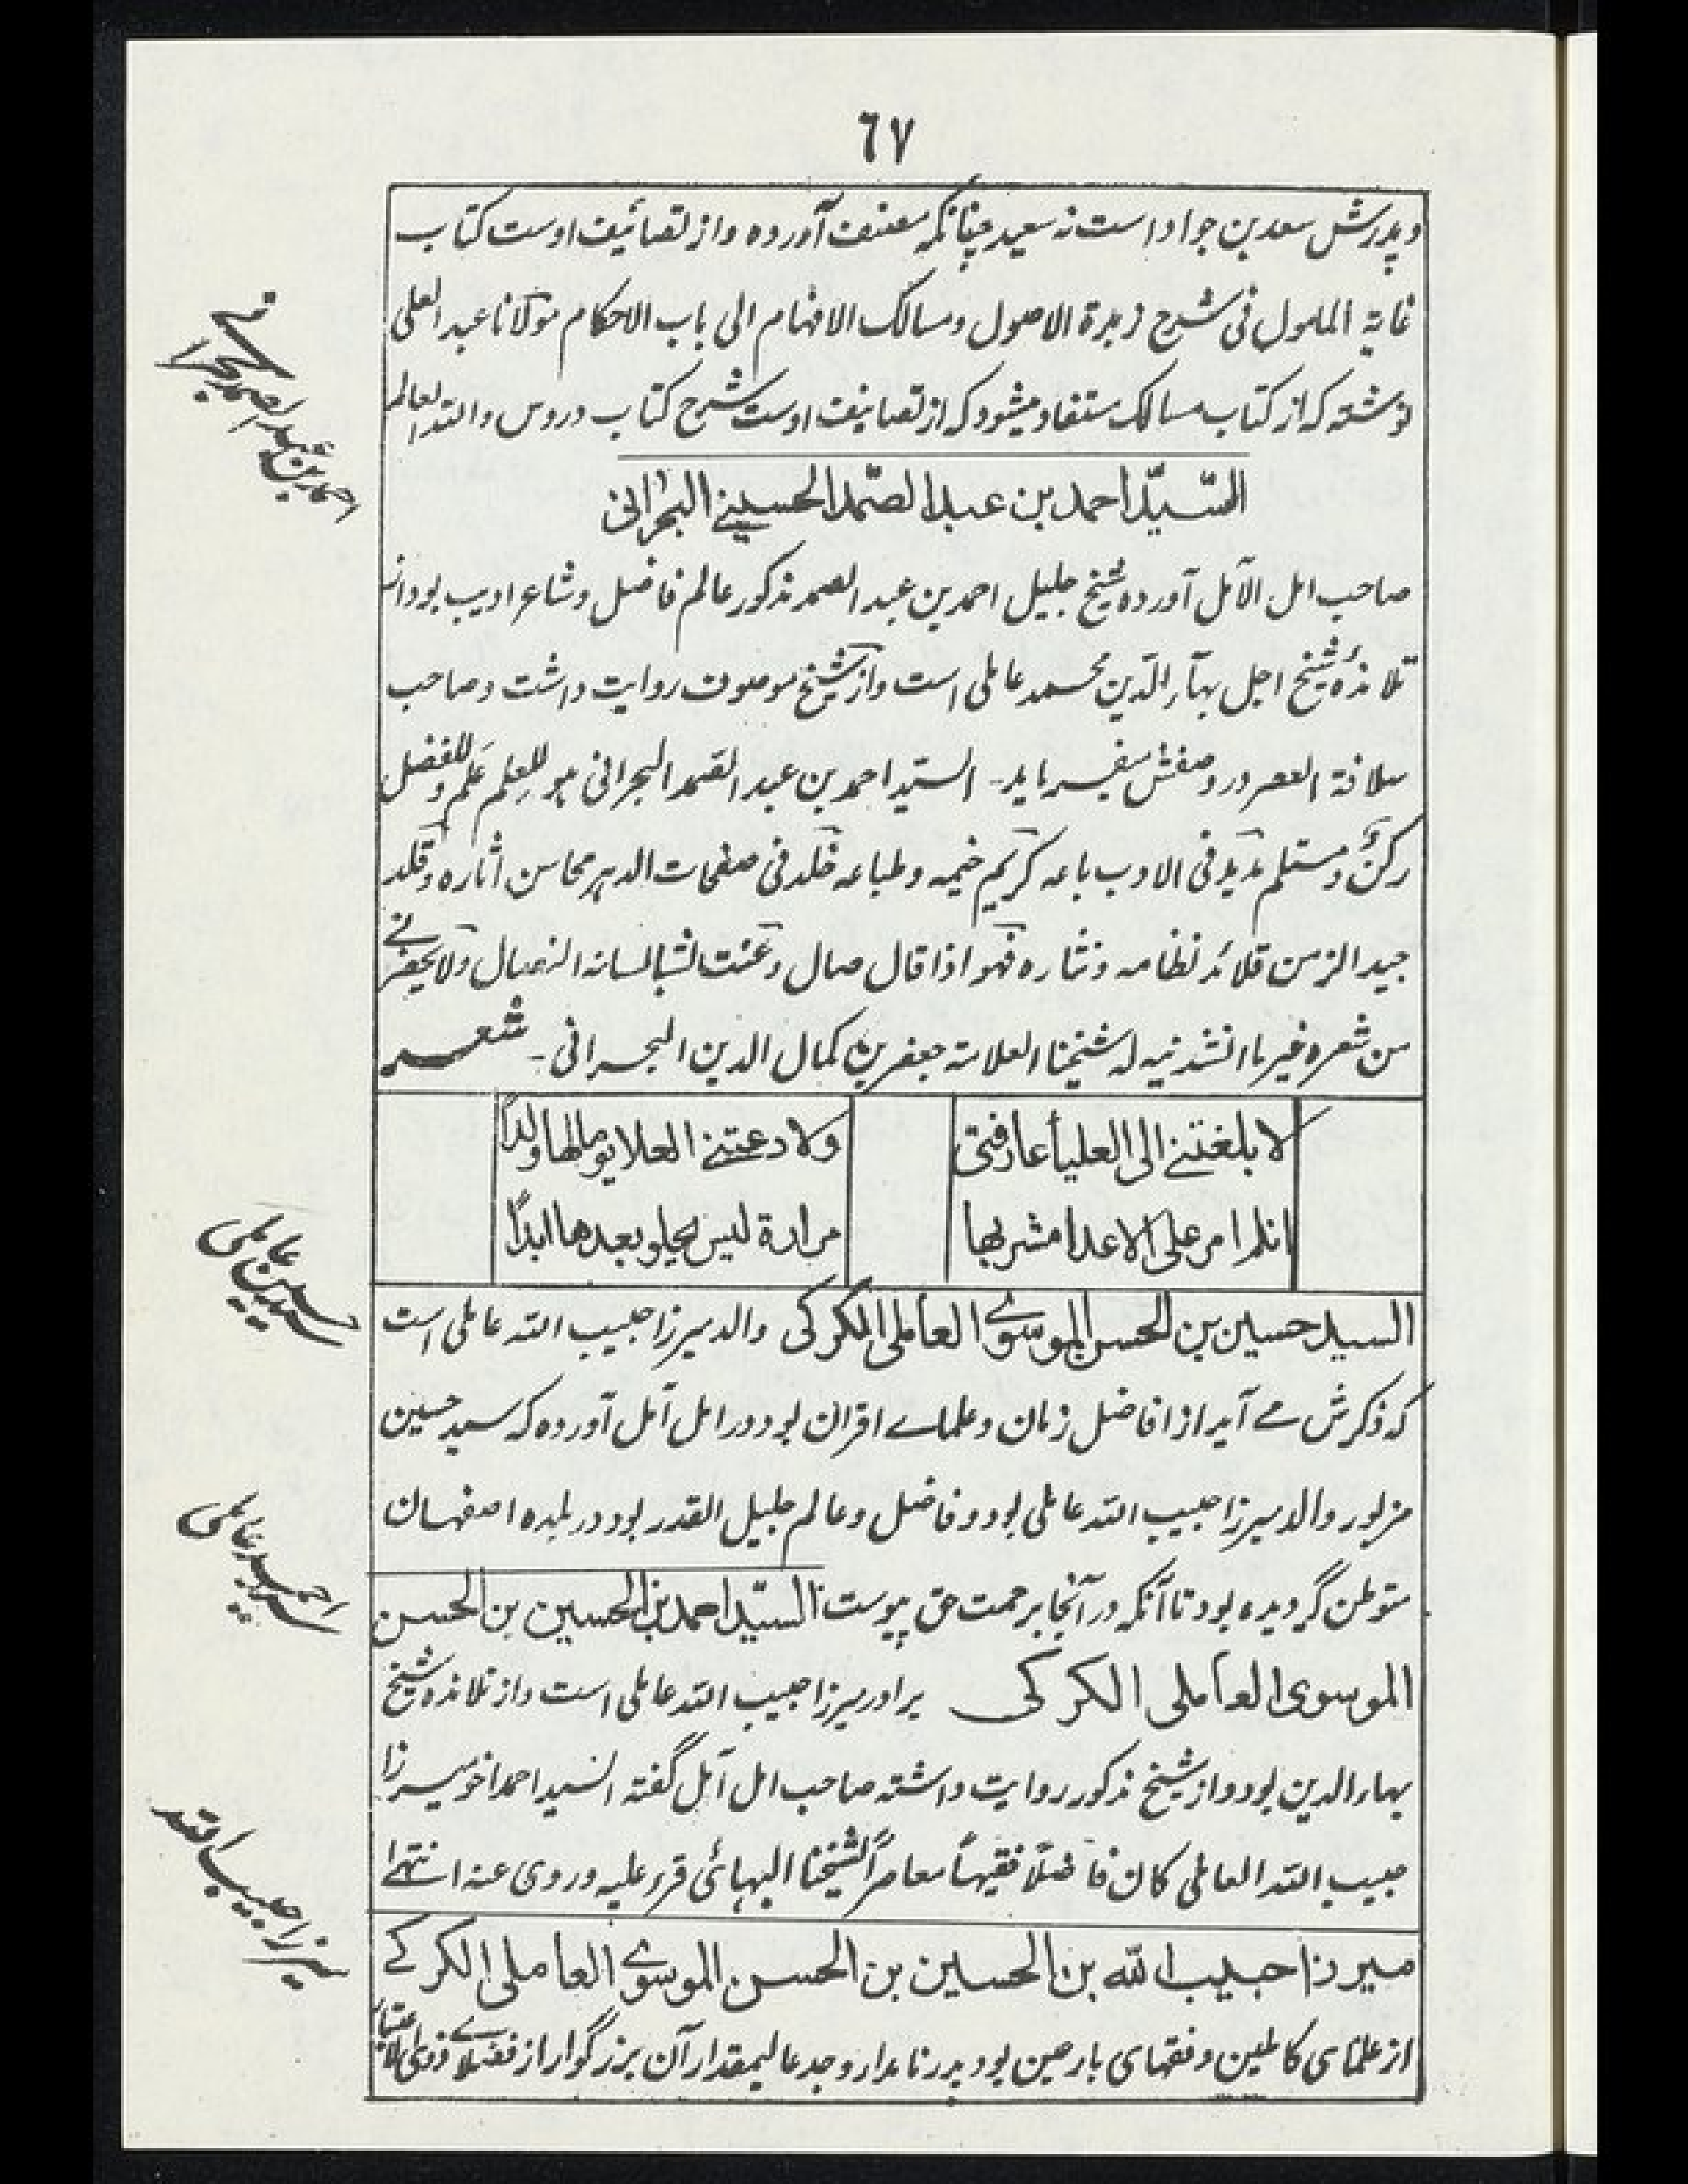 ٦٧
و پدرش سعد بن جواد است نه سعید چنانکه مصنف آورده و از تصانیف اوست کتاب
غایة المامول فی شرح زبدة الاصول و مسالک الافهام الی باب الاحکام مولانا عبد العلی
نوشته که از کتاب مسالک مستفاد میشود که از تصانیف اوست شرح کتاب دروس والله العالم
السیّد احمد بن عبد الصّمد الحسینے البحرانی
احمد بن عبد الصمد بحرانے
صاحب امل الآمل آورده شیخ جلیل احمد بن عبد الصمد مذکور عالم فاضل و شاعر ادیب بود از
تلامذۀ شیخ اجل بهآء الدّین محمد عاملی است و از شیخ موصوف روایت داشت و صاحب
سلافة العصر در وصفش میفرماید۔ السیّد احمد بن عبد الصّمد البحرانی هو للعِلم عَلم و للفضل
رکنٌ و مستلم مدید فی الادب باعه کریم خیمه و طباعه خلد فی صفحات الدهر محاسن اثاره و قلد
جید الزمن قلائد نظامه و نثاره فهو اذا قال صال و عنت لشبا لسانه النصال ولا یحضرنے
من شعره غیر ما انشدنیه له شیخنا العلامة جعفر بن کمال الدین البحرانی۔ شعر
لا بلغتنے الی العلیأ عارفتی ولا دعتنے العلا یوما لها ولداً
ان لم امر علی الاعدا مشربها مرارة لیس یحلو بعدها ابداً
السید حسین بن الحسن الموسوے العاملی الکرکی والد میرزا حبیب الله عاملی است
سید حسین عاملی
که ذکرش مے آید از افاضل زمان و علماے اقران بود در امل آمل آورده که سید حسین
مزبور والد میرزا حبیب الله عاملی بود و فاضل و عالم جلیل القدر بود در بلده اصفهان
متوطن گردیده بود تا آنکه در آنجا برحمت حق پیوست السیّد احمد بن الحسین بن الحسن
سید احمد عاملی
الموسوی العاملی الکرکی برادر میرزا حبیب الله عاملی است و از تلامذه شیخ
بهاء الدین بود و از شیخ مذکور روایت داشته صاحب امل آمل گفته السید احمد اخو میرزا
حبیب الله العاملی کان فاضلاً فقیهاً معاصراً لشیخنا البهائی قرء علیه و روی عنه انتهے
میرزا حبیب الله
میرزا حبیب الله بن الحسین بن الحسن الموسوے العاملی الکرکے
از علمای کاملین و فقهای بارعین بود پدر نامدار و جد عالیمقدار آن بزرگوار از فضلاے ذوی الاعتبار